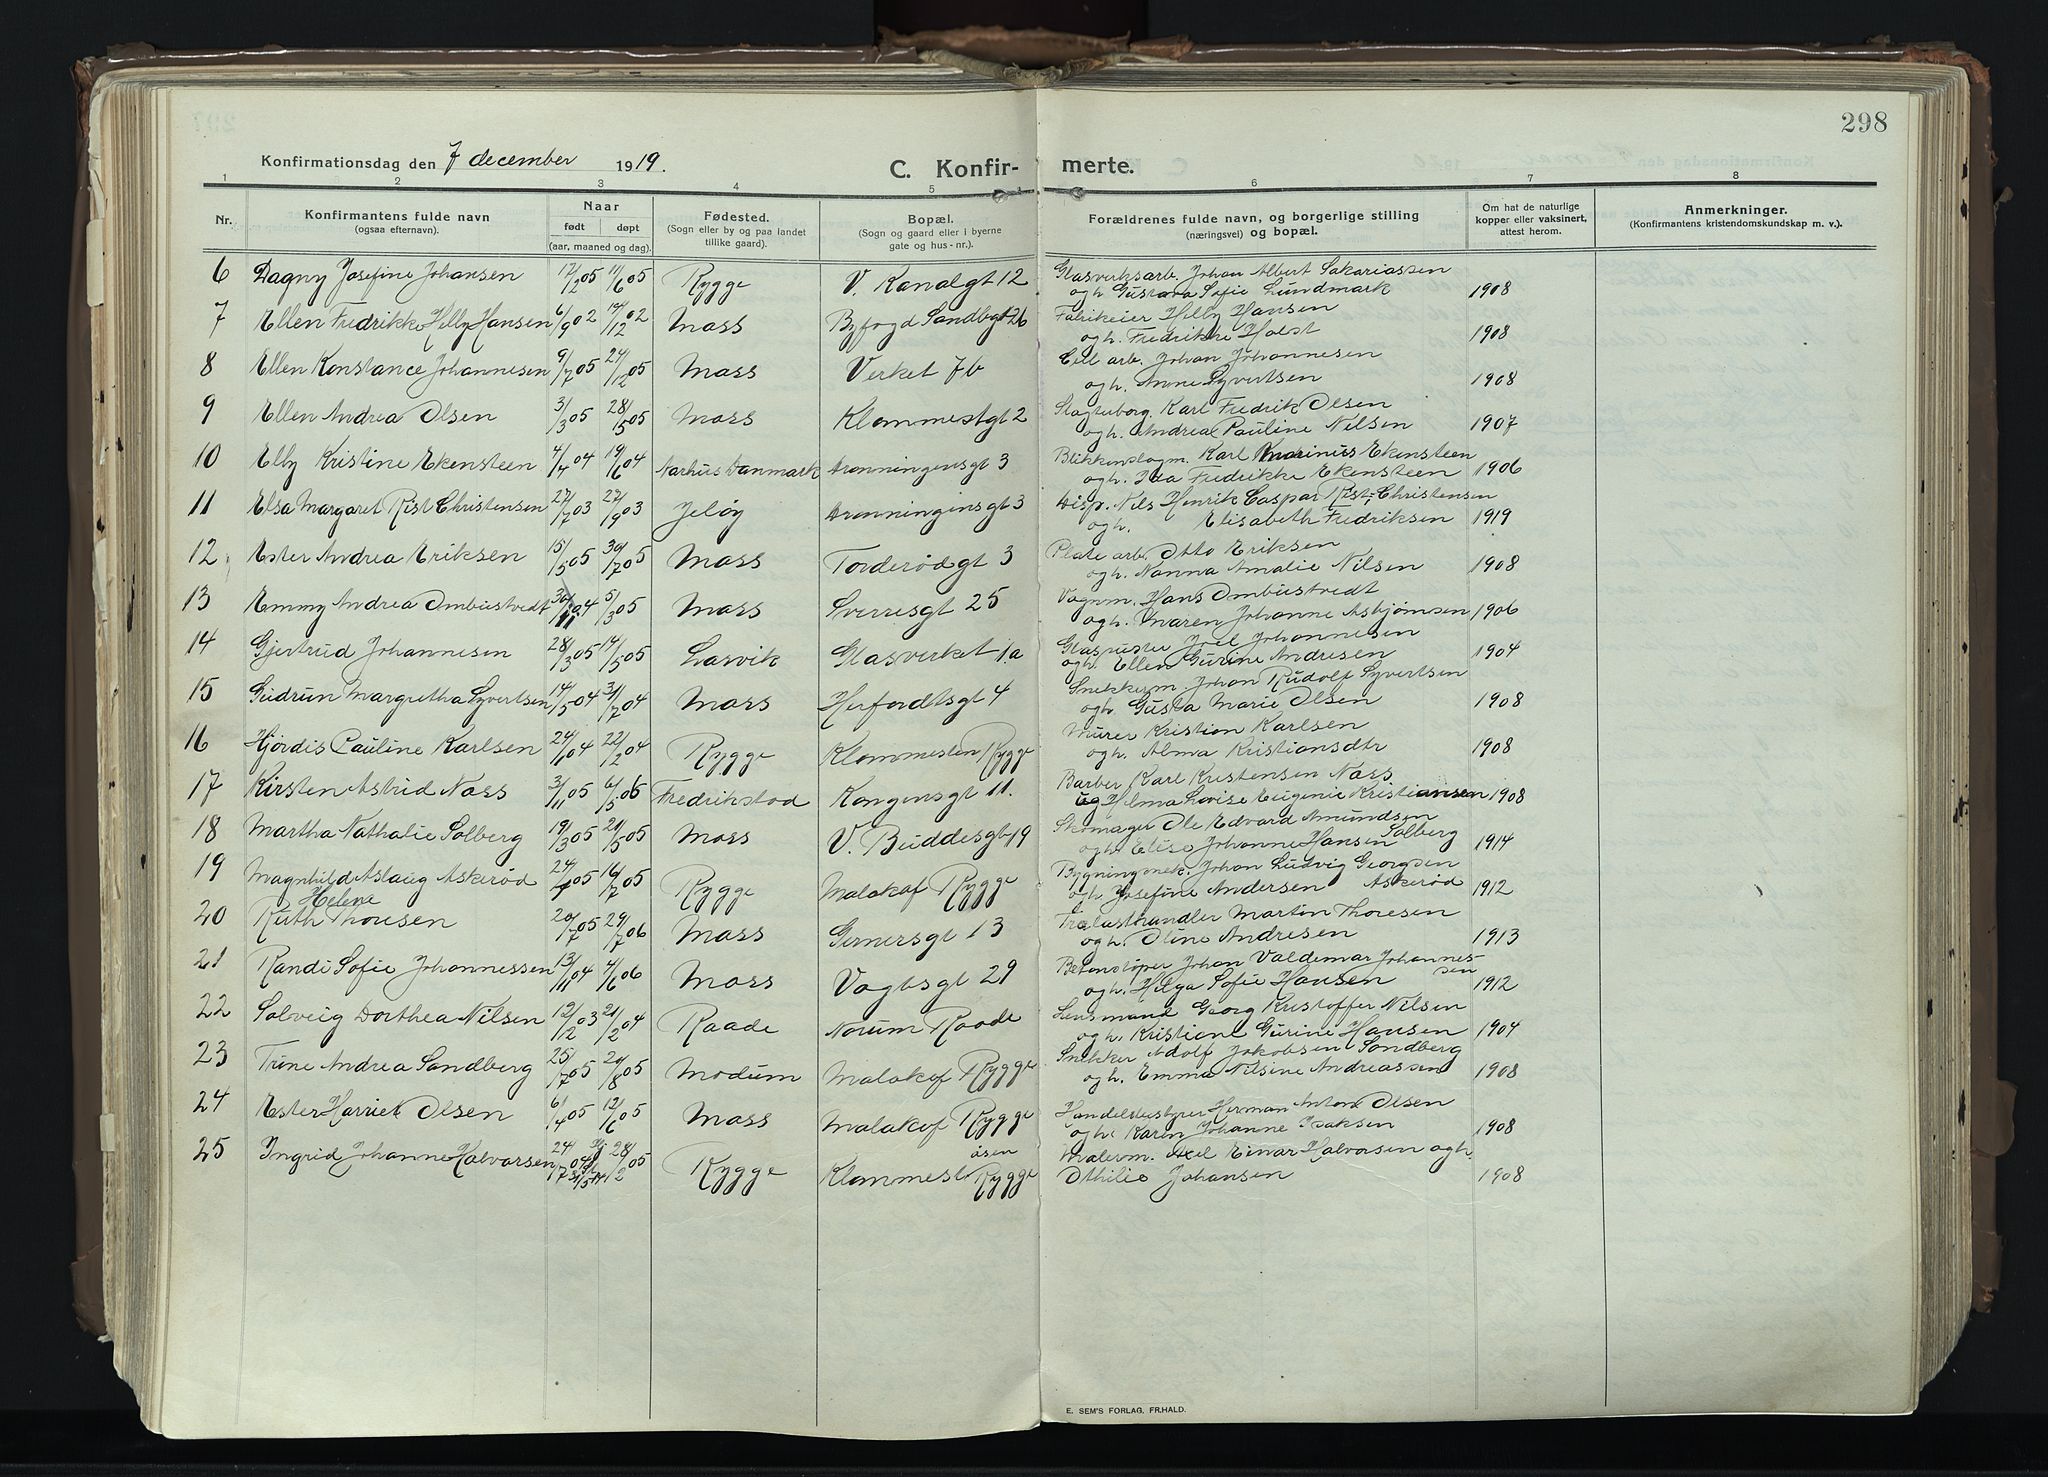 298
Konfirmationsdag den 7 december 1919.
C. Konfirmerte.
1 2 3 4 5 6 7 8
Nr.
Konfirmantens fulde navn
(ogsaa efternavn).
Naar
født døpt
(aar, maaned og dag).
Fødested.
(Sogn eller by og paa landet
tillike gaard).
Bopæl.
(Sogn og gaard eller i byerne
gate og hus-nr.).
Forældrenes fulde navn, og borgerlige stilling
(næringsvei) og bopæl.
Om hat de naturlige
kopper eller vaksinert,
attest herom.
Anmerkninger.
(Konfirmantens kristendomskundskap m. v.).
6 Dagny Josefine Johansen 17/2 05 11/6 05 Rygge V. Kanalgt 12 Glasverksarb. Johan Albert Sakariassen
og h. Gustava Sofie Lundmark 1908
7 Ellen Fredrikke Hilly Hansen 6/9 02 14/12 02 Moss Byfogd Sandbgt 26 Fabrikeier Hilly Hansen
og h. Fredrikke Holst 1908
8 Ellen Konstance Johannesen 9/7 05 24/12 05 Moss Verket 7b Cell arb. Johan Johannesen
og h. Anne Syvertsen 1908
9 Ellen Andrea Olsen 3/3 05 28/5 05 Moss Klommestgt 2 Karl Fredrik Olsen
og h. Andrea Pauline Nilsen 1907
10 Elly Kristine Ekensteen 4/4 04 19/6 04 Aarhus Danmark Dronningensgt 3 Blikkenslagm. Karl Marinus Ekensteen
og h. Ida Fredrikke Ekensteen 1906
11 Elsa Margaret Rist Christensen 27/7 03 27/9 03 Jeløy Dronningensgt 3 Disp. Nils Henrik Caspar Rist-Christensen
og h. Elisabeth Fredriksen 1919
12 Ester Andrea Eriksen 15/5 05 30/7 05 Moss Torderødgt 3 Plate arb. Otto Eriksen
og h. Nanna Amalie Nilsen 1908
13 Emmy Andrea Ombustvedt 30/11 04 5/3 05 Moss Sverresgt 25 Vognm. Hans Ombustvedt
og h. Maren Johanne Asbjørnsen 1906
14 Gjertrud Johannesen 28/3 05 14/5 05 Larvik Glasverket 1a Glaspuster Joel Johannesen
og h. Ellen Gurine Andresen 1904
15 Gudrun Margretha Syvertsen 14/5 04 31/7 04 Moss Herfordtsgt 4 Snekkerm Johan Rudolf Syvertsen
og h. Gusta Marie Olsen 1908
16 Hjørdis Pauline Karlsen 24/1 04 22/2 04 Rygge Klommesten Rygge Murer Kristian Karlsen
og h. Alma Kristiansdtr 1908
17 Kirsten Astrid Næss 3/11 05 6/5 06 Fredrikstad Kongensgt 11. Barber Karl Kristensen Næss
og Hilma Lovise Eugenie Kristiansen 1908
18 Martha Nathalie Solberg 19/3 05 21/5 05 Moss V. Buddesgt 19 Skomager Ole Edvard Amundsen Solberg
og h. Elise Johanne Hansen 1914
19 Magnhild Aslaug Askerød 24/4 05 16/7 05 Rygge Malakof Rygge Bygningsnek. Johan Ludvig Georgsen
og h. Josefine Andersen Askerød 1912
20 Ruth Helene Thoresen 20/7 05 29/7 06 Moss Gernersgt 13 Trælasthandler Martin Thoresen
og h. Oline Andresen 1913
21 Randi Sofie Johannessen 13/11 04 4/6 06 Moss Vogtsgt 29 Betonstøper Johan Valdemar Johannessen
og h. Hilga Sofie Hansen 1912
22 Solveig Dorthea Nilsen 12/12 03 21/2 04 Raade Norum Raade Lensmand Georg Kristoffer Nilsen
og h. Kristiane Gurine Hansen 1904
23 Trine Andrea Sandberg 25/7 05 20/8 05 Modum Malakof Rygge Snekker Adolf Jakobsen Sandberg
og h. Emma Nilsine Andreassen 1908
24 Ester Harriet Olsen 6/4 05 12/6 05 Moss Malakof Rygge Handelsbestyrer Herman Anton Olsen
og h. Karen Johanne Isaksen 1908
25 Ingrid Johanne Halvorsen 24/7 04 28/2 05 Rygge Klommest Rygge Malerm. Axel Einar Halvorsen og h.
Othilie Johansen 1908
E. SEM'S FORLAG, FR.HALD.